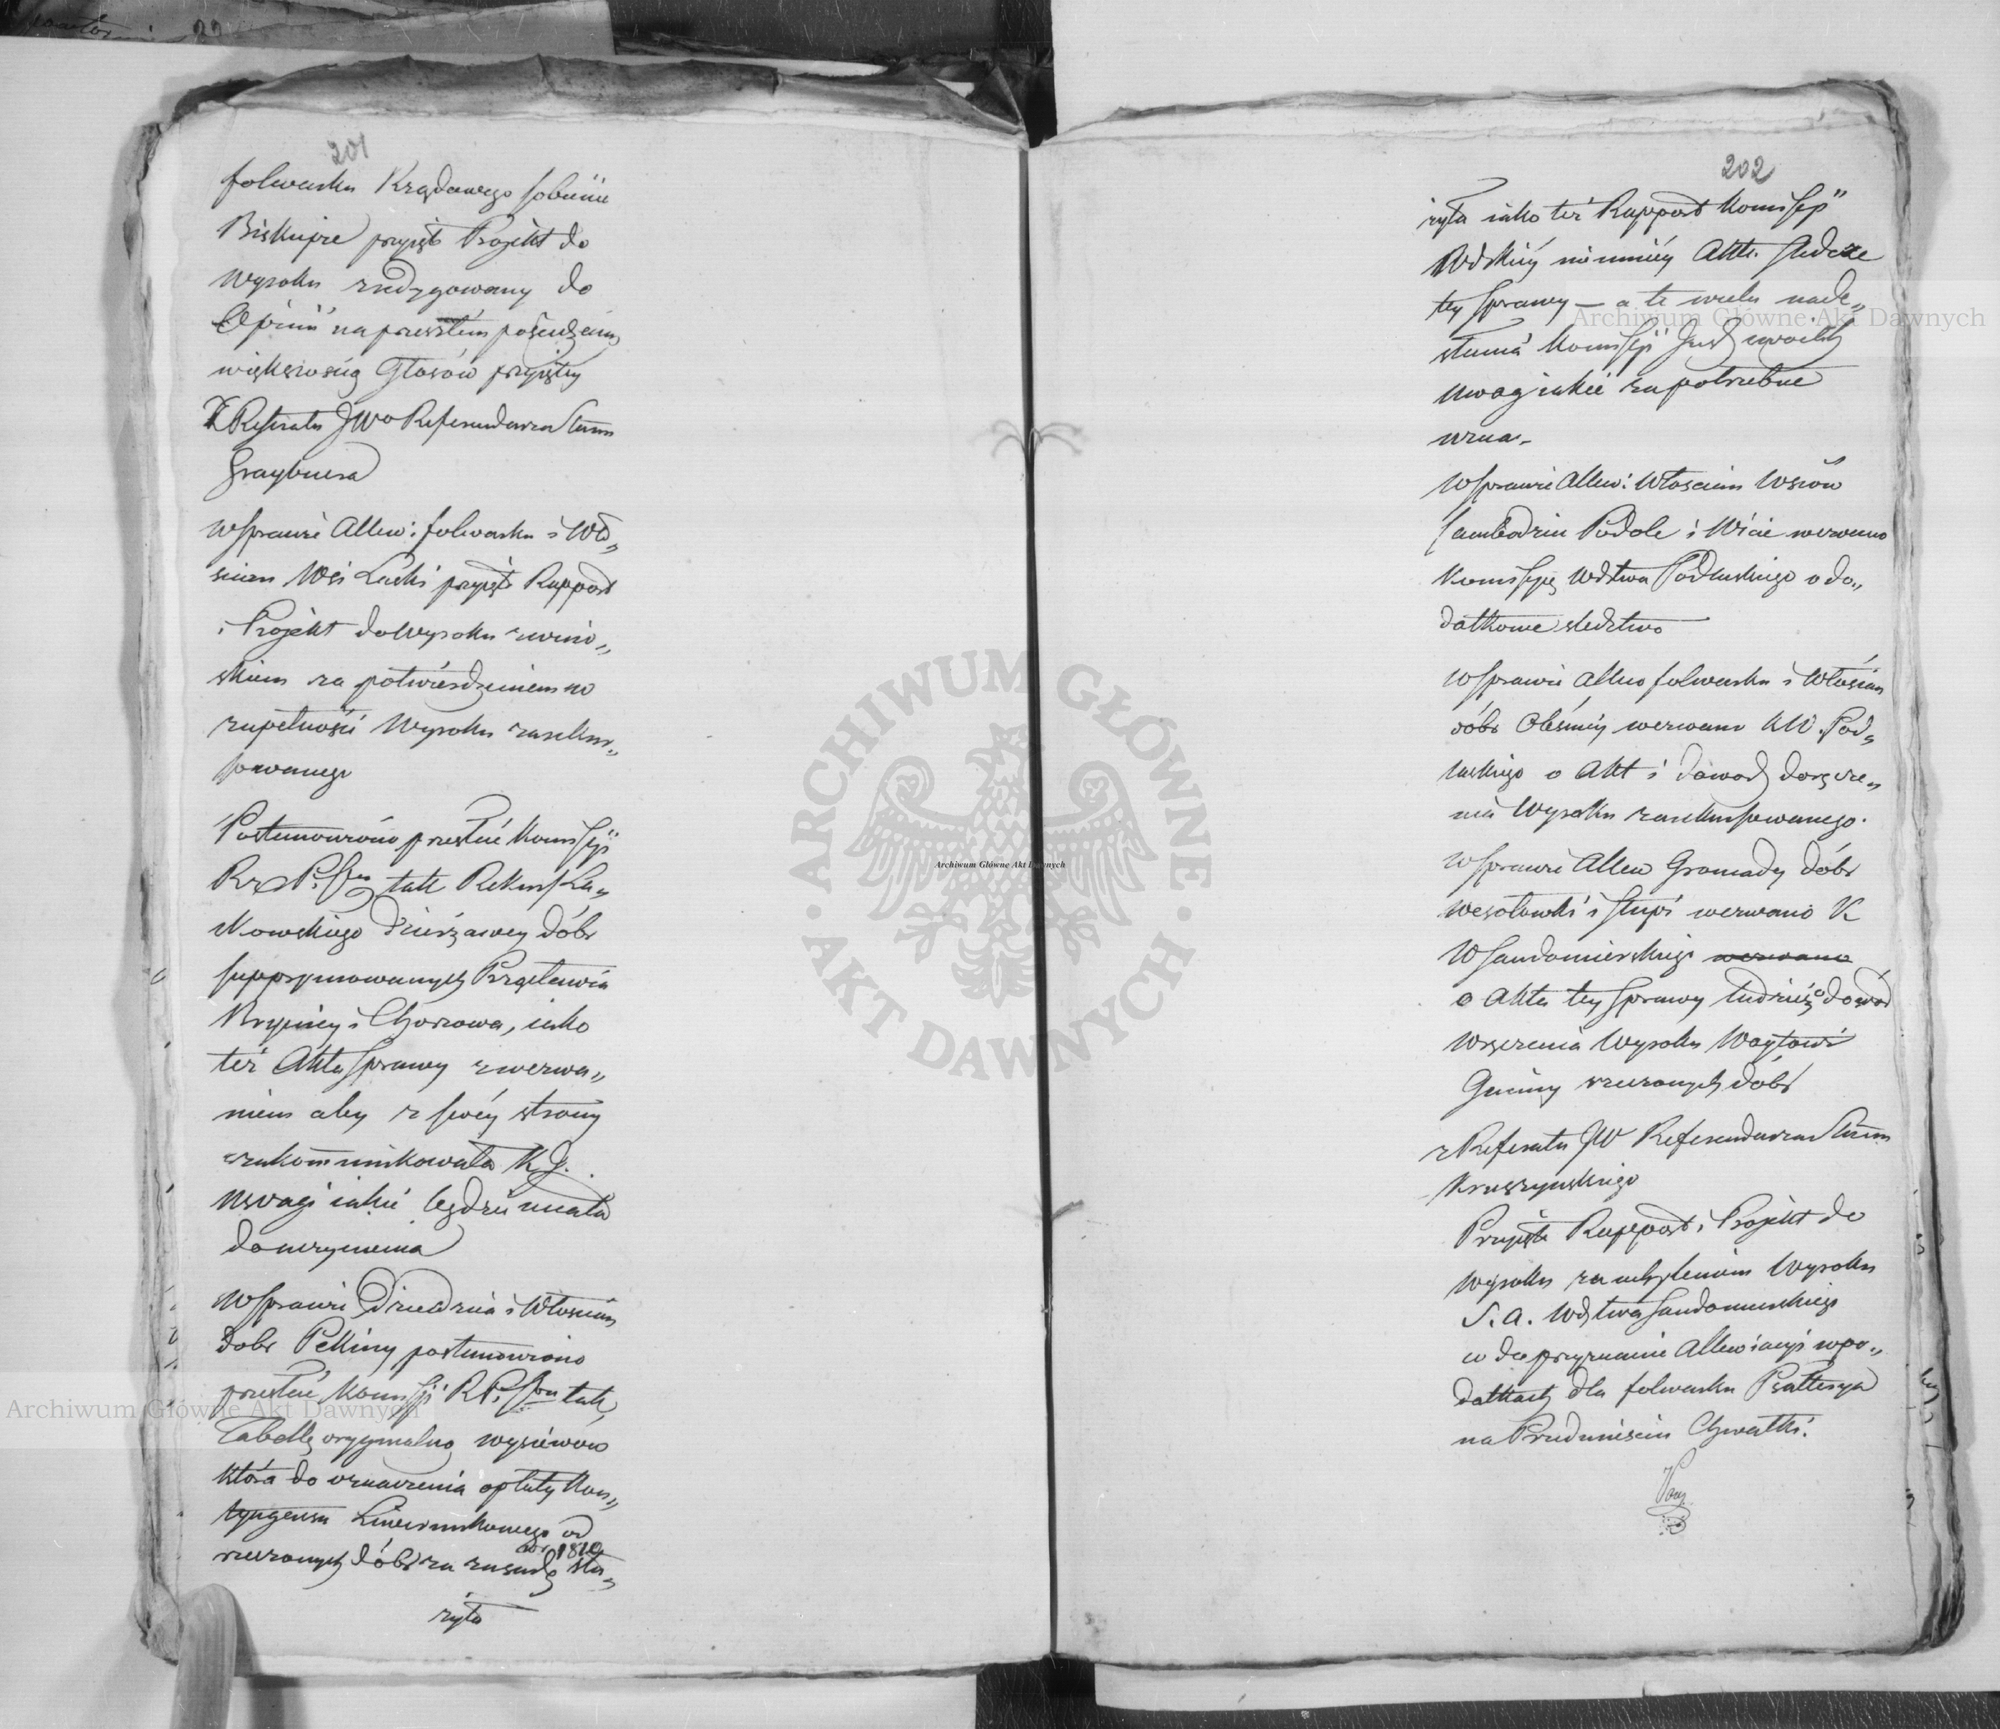 201
folwarku Krządowego sobienie
Biskupie przyięto Projekt do
Wyroku zredygowany do
Opinii na przeszłem posiedzeniu
większością Głosów przyiętey
Z Referatu JWo Referendarza Stanu
Graybnera
W Sprawie Allew: folwarku i Wło„
scian Wsi Laski przyięto Rapport
i Projekt do Wyroku z wnio„
skiem za potwierdzeniem w
zupełności Wyroku zarekur„
sowanego
Postanowiono przesłać Komissji
Rz P. i Srbu tak Rekurs Ła„
Nowskiego Dzierżawcy dóbr
suppzymowanych Przętawia
Brzeziny i Chorzowa, iako
też Akta Sprawy z wezwa„
niem aby z swéy strony
zakommunikowała K J.
Uwagi iakie będzie miała
do uczynienia
W Sprawie Dziedzica i Włoscian
dobr Pełkiny postanowiono
przesłać Komissji R P. i Srbu tak
Tabellę oryginalną wysiewów
która do oznaczenia opłaty Kon„
tyngensu Liwerunkowego od
rzeczonych dóbr za zasadę słu„
do r 1810
żyła
202
żyła iako też Rapport Komissji
Wdzkiéy niemniéy Akta śledcze
tey sprawy — a to wcelu nade„
słania Komissji Just. wraich
uwag iakie za potrzebne
uzna.
W Sprawie Allew: Włoscian Wsiów
Cambodzin Podole i Wicie wezwano
Komissyę Wdztwa Podlaskiego o do„
datkowe sledztwo
W Sprawie Allew folwarku i Włoscian
dóbr Olésnicy wezwano KW. Pod„
laskiego o Akt i dowod doręcze„
nia Wyroku zarekursowanego.
W Sprawie Allew Gromady dóbr
Wesołówki i Słupi wezwano K
W Sandomierskiego wezwano
o Akta tey sprawy tudzież o dowód
wręczenia Wyroku Woytowi
Gminy rzeczonych dóbr
z Referatu JW Referendarza Stanu
Kruszynskiego
Przyięto Rapport i Projekt do
Wyroku za uchyleniem Wyroku
S. A. Wdztwa Sandomierskiego
co do przyznania Allewiacyi w po„
datkach dla folwarku Psałterya
na Przedmiesciu Chwałki.